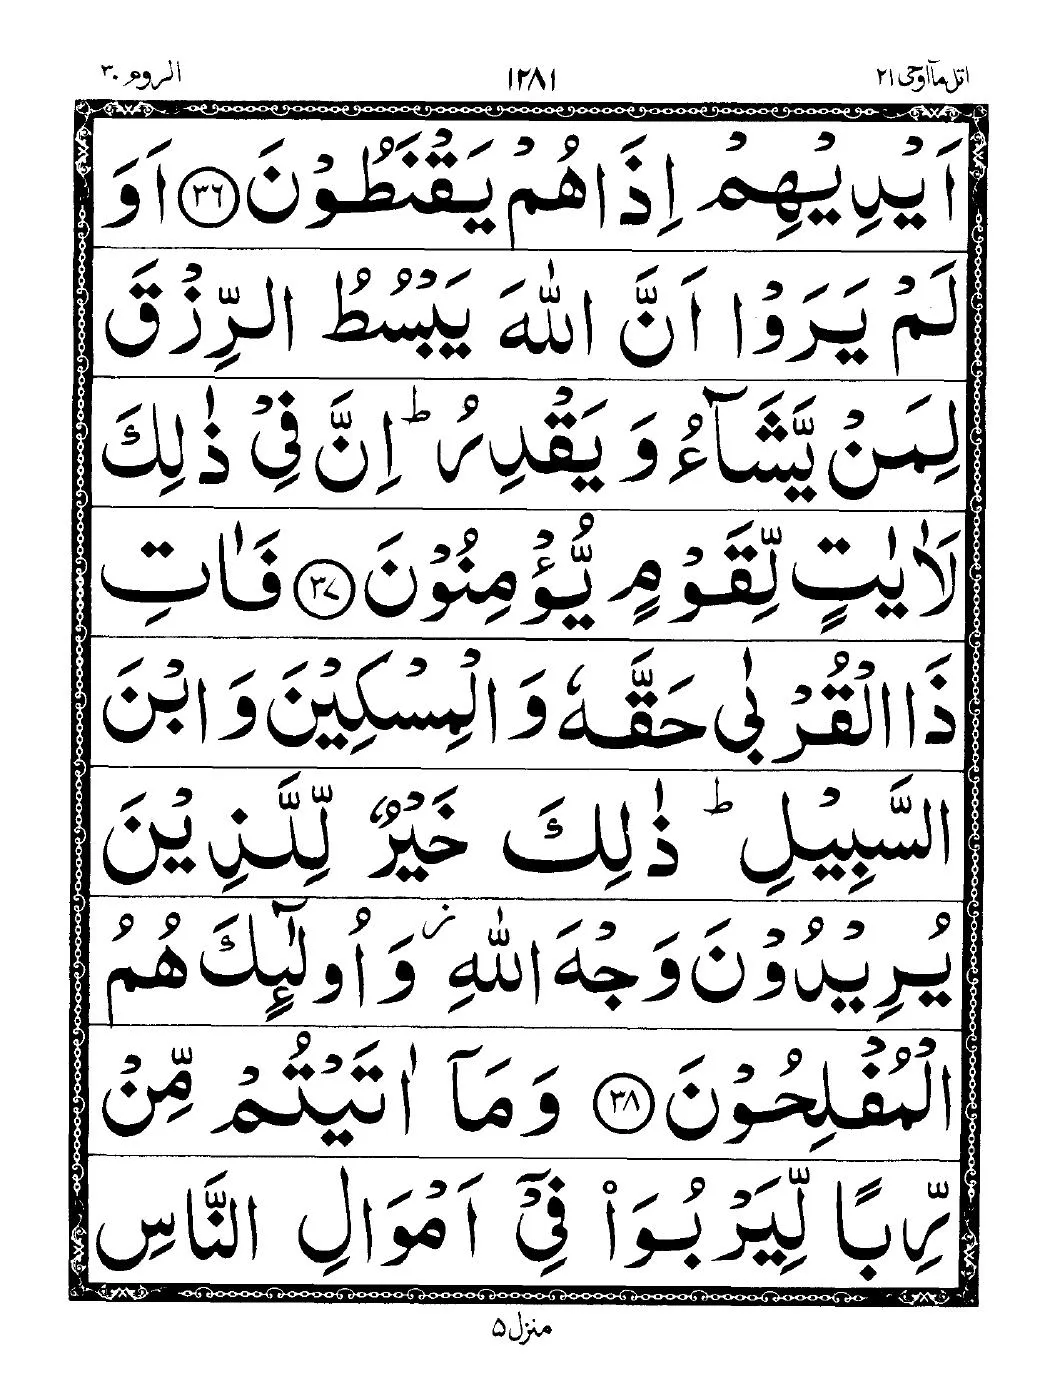 اتل مآ اوحی ۲۱ ۱۲۸۱ الروم ۳۰
اَيْدِيْهِمْ اِذَا هُمْ يَقْنَطُوْنَ ۝۳۶ اَوَ
لَمْ يَرَوْا اَنَّ اللّٰهَ يَبْسُطُ الرِّزْقَ
لِمَنْ يَّشَآءُ وَ يَقْدِرُ ؕ اِنَّ فِيْ ذٰلِكَ
لَاٰيٰتٍ لِّقَوْمٍ يُّؤْمِنُوْنَ ۝۳۷ فَاٰتِ
ذَا الْقُرْبٰى حَقَّهٗ وَ الْمِسْكِيْنَ وَ ابْنَ
السَّبِيْلِ ؕ ذٰلِكَ خَيْرٌ لِّلَّذِيْنَ
يُرِيْدُوْنَ وَجْهَ اللّٰهِ ؗ وَ اُولٰٓئِكَ هُمُ
الْمُفْلِحُوْنَ ۝۳۸ وَ مَاۤ اٰتَيْتُمْ مِّنْ
رِّبًا لِّيَرْبُوَا۠ فِيْۤ اَمْوَالِ النَّاسِ
منزل ۵